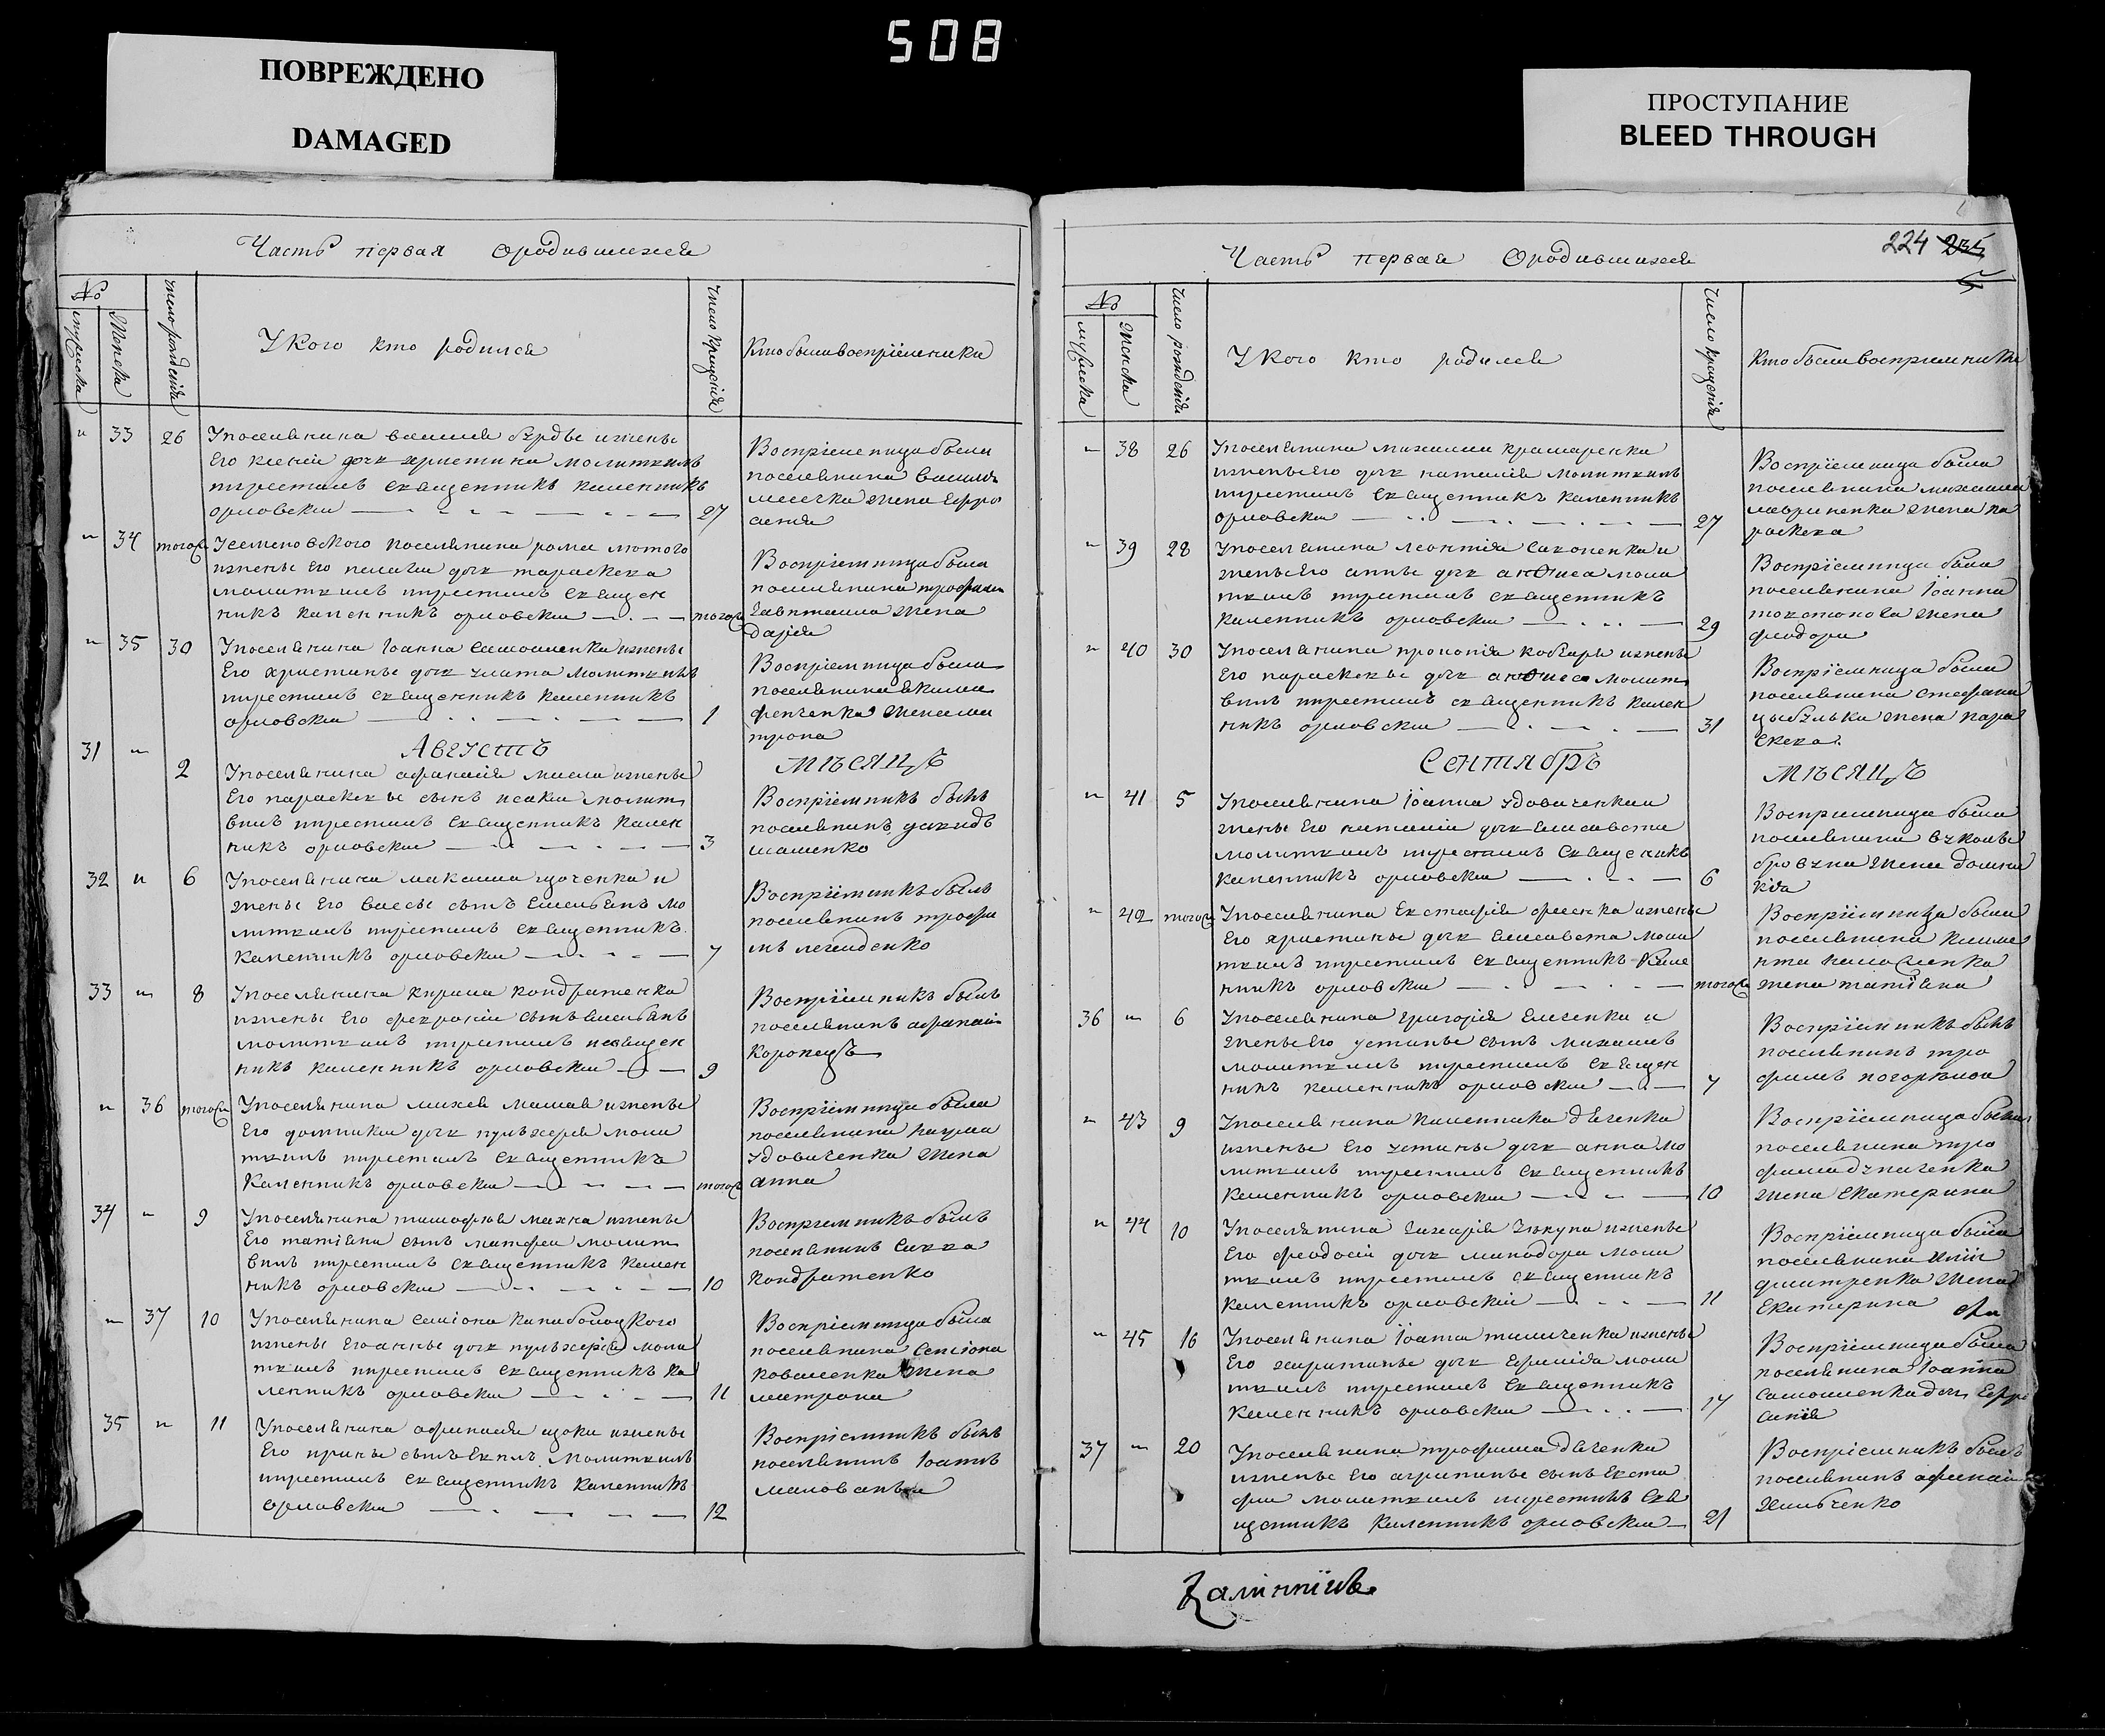 508
ПОВРЕЖДЕНО
DAMAGED
ПРОСТУПАНИЕ
BLEED THROUGH
Часть первая ородившихся
№
мужеска
женска
число рождения
У кого кто родился
число крещения
кто были воспріемники
33 26
Упоселянина василія бѣрды ижены
Его ксеніи дочь христина молитвилъ
икрестилъ священникъ каленникъ
орловски
27
Воспріемница была
поселянина василія
жена Евфро
синія
34 тогож
поселянина романа лютого
ижены Его пелагии дочь параскева
молитвилъ икрестилъ священ
никъ каленникъ орловски
тогож
Воспріемница была
поселянина трофима
жена
дарія
35 30
Упоселянина Іоанна самойленка ижены
Его христины дочь злата молитвилъ
икрестилъ священникъ каленникъ
орловски
1
Воспріемница была
поселянина якима
жена ма
трона
Августъ
мѣсяцъ
31 2
Упоселянина афанасія ижены
Его параскевы сынъ исакий молит
вилъ икрестилъ священникъ кален
никъ орловски
3
Воспріемникъ былъ
поселянинъ давидъ
шаменко
32 6
Упоселянина максима цоченка и
жены Его вассы сынъ Емельянъ мо
литвилъ икрестилъ священникъ
каленникъ орловски
7
Воспріемникъ былъ
поселянинъ трофи
мъ легейденко
33 8
Упоселянина кирила кондратенка
ижены Его февроніи сынъ Емельянъ
молитвилъ икрестилъ священ
никъ каленникъ орловски
9
Воспріемникъ былъ
поселянинъ афанасій
коропецъ
36 тогож
Упоселянина михея ижены
Его домники дочь пульхерія моли
твилъ икрестилъ священникъ
каленникъ орловски
тогож
Воспріемница была
поселянина наума
удовиченка жена
анна
34 9
Упоселянина тимофея махна ижены
Его татіяны сынъ матфей молит
вилъ икрестилъ священникъ кален
никъ орловски
10
Воспріемникъ былъ
поселянинъ савва
кондратенко
37 10
Упоселянина симіона калаболоцкого
ижены Его анны дочь пульхерія моли
твилъ икрестилъ священникъ ка
ленникъ орловски
11
Воспріемница была
поселянина семіона
коваленка жена
матрона
35 11
Упоселянина афанасія цоки ижены
Его ирины сынъ молитвилъ
икрестилъ священникъ каленникъ
орловски
12
Воспріемникъ былъ
поселянинъ Іоаннъ
малованый
Часть первая Ородившихся
224 235
№
мужеска
женска
число рожденія
У кого кто родился
число крещенія
кто были воспріемники
38 26
Упоселянина михаила крамаренка
ижены Его дочь наталія молитвилъ
икрестилъ священникъ каленникъ
орловски
27
Воспріемница была
поселянина михаила
лавриненка жена па
раскева
39 28
Упоселянина леонтія саконенка и
жены Его анны дочь анѳиса моли
твилъ икрестилъ священникъ
каленникъ орловски
29
Воспріемница была
поселянина Іоанна
токаткова жена
феодора
40 30
Упоселянина прокопія кобзаря ижены
Его параскевы дочь анѳиса молит
вилъ икрестилъ священникъ кален
никъ орловски
31
Воспріемница была
поселянина стефана
цыбульки жена пара
скева.
Сентябрь
мѣсяцъ
41 5
Упоселянина Іоанна удовиченка
жены Его наталіи дочь Елисавета
молитвилъ икрестилъ священикъ
каленникъ орловски
6
Воспріемница была
поселянина вуколы
бровуна жена домни
кія
42 тогож
Упоселянина Евстафія ижены
Его христины дочь Елисавета моли
твилъ икрестилъ священникъ кале
нникъ орловски
тогож
Воспріемница была
поселянина климе
нта
жена татіяна
36 6
Упоселянина григорія Елченка и
жены Его устины сынъ михаилъ
молитвилъ икрестилъ священ
никъ каленникъ орловски
7
Воспріемникъ былъ
поселянинъ тро
фимъ погорѣлой
43 9
Упоселянина каленника дяченка
ижены Его устины дочь анна мо
литвилъ икрестилъ священникъ
каленникъ орловски
10
Воспріемница была
поселянина тро
фима
жена Екатерина
44 10
Упоселянина захарія ижены
Его феодосіи дочь минодора моли
твилъ икрестилъ священникъ
каленникъ орловскій
11
Воспріемница была
поселянина иліи
дмитренка жена
Екатерина
45 16
Упоселянина Іоанна ижены
Его харитины дочь Ефимія моли
твилъ икрестилъ священникъ
каленникъ орловски
17
Воспріемница была
поселянина Іоанна
самойленка дочь Ефро
синія
37 20
Упоселянина трофима дяченка
ижены Его агрипины сынъ Евста
фій молитвилъ икрестилъ свя
щенникъ каленникъ орловски
21
Воспріемникъ былъ
поселянинъ афанасій
хильченко